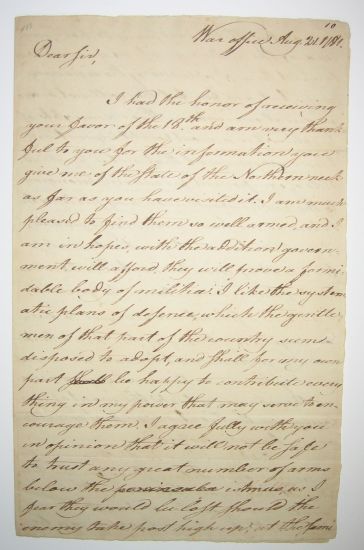 War office Aug 21. 1781.
Dear Sir,
I had the honor of receiving
your favor of the 18th. and am very thank
ful to you for the information you
give me of the state of the Northern neck
as far as you have visited it. I am much
pleased to find them so well armed, and I
am in hopes, with the addition govern-
ment, will afford, they will prove a formi
dable body of militia: I like the system
atic plans of defence, which the gentle
men of that part of the country seem
disposed to adopt, and shall for my own
part be happy to contribute every
thing in my power that may serve to en-
courage them. I agree fully with you
in opinion that it will not be safe
to trust any great number of arms
below the as I
fear they would be lost should the
enemy take post high up: at the same